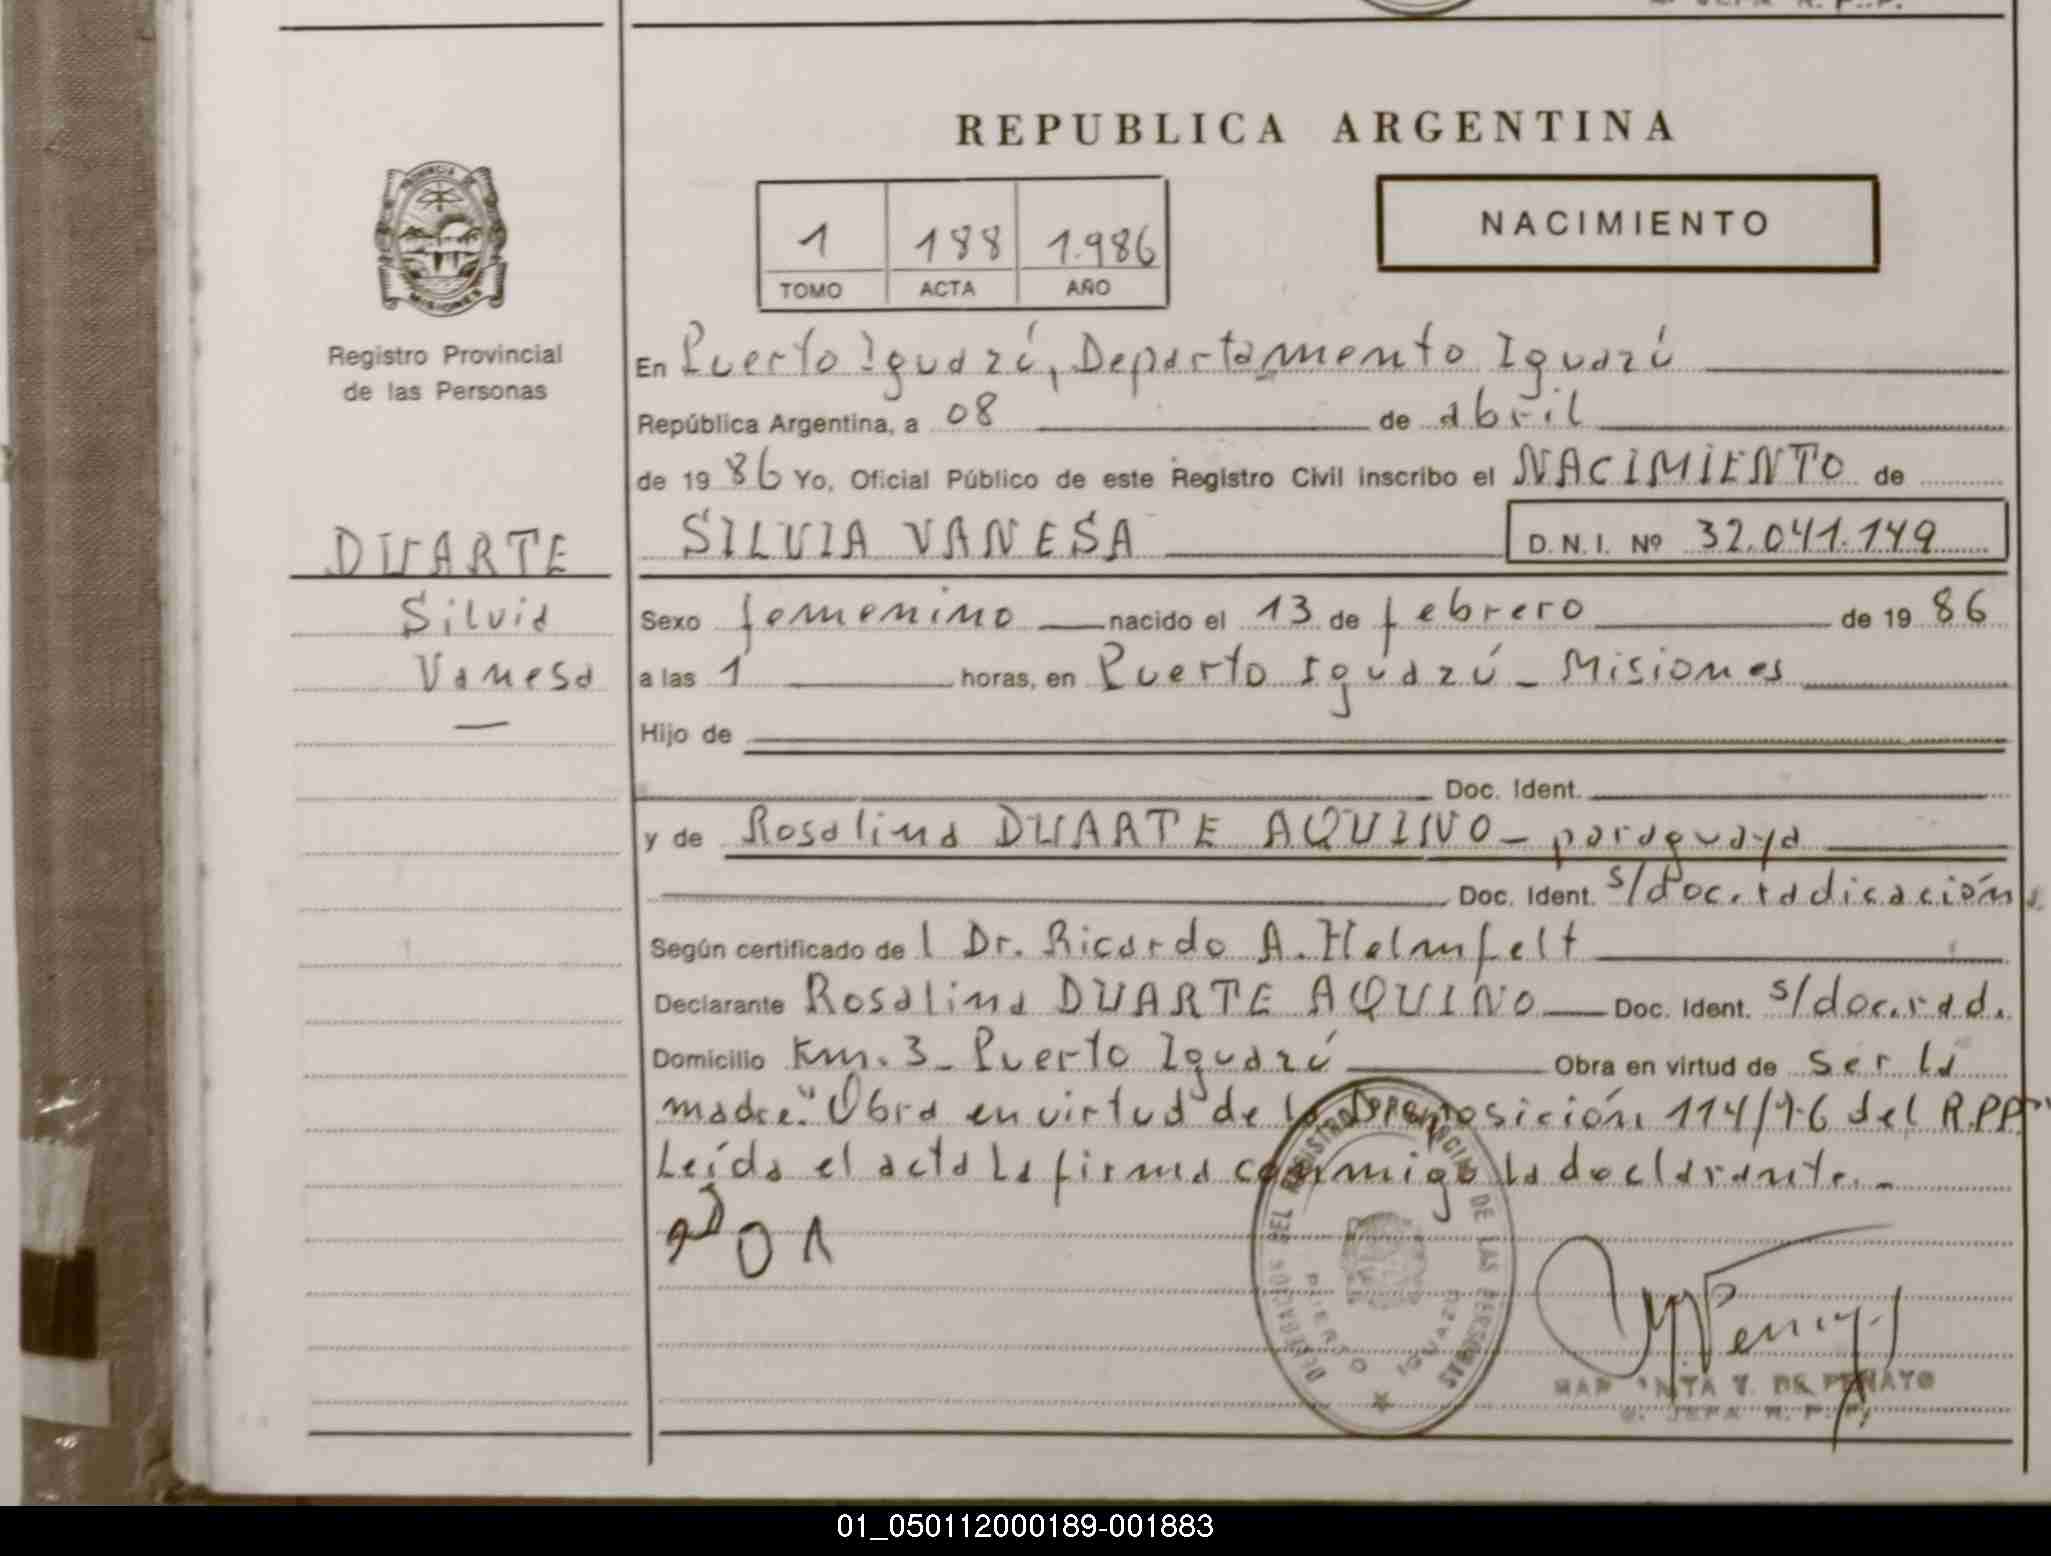 REPUBLICA ARGENTINA
NACIMIENTO
1 188 1.986
TOMO ACTA AÑO
PROVINCIA DE
MISIONES
Registro Provincial
de las Personas
En Puerto Iguazú, Departamento Iguazú
República Argentina, a 08 de abril
de 19 86 Yo, Oficial Público de este Registro Civil inscribo el NACIMIENTO de
DUARTE
Silvia
Vanesa
SILVIA VANESA D.N.I. Nº 32.041.149
Sexo femenino nacido el 13 de febrero de 19 86
a las 1 horas, en Puerto Iguazú - Misiones
Hijo de
Doc. Ident.
y de Rosalina DUARTE AQUINO - paraguaya
Doc. Ident. s/doc. radicación
Según certificado del Dr. Ricardo A. Helmfelt
Declarante Rosalina DUARTE AQUINO Doc. Ident. s/doc. rad.
Domicilio Km. 3 - Puerto Iguazú Obra en virtud de ser la
madre. "Obra en virtud de la Disposición 114/76 del R.P.P."
Leída el acta la firma conmigo la declarante. -
R D O A
DEL REGISTRO PROVINCIAL DE LAS PERSONAS
PUERTO IGUAZU
DE PEÑATO
JEFA R. P. P.
01_050112000189-001883